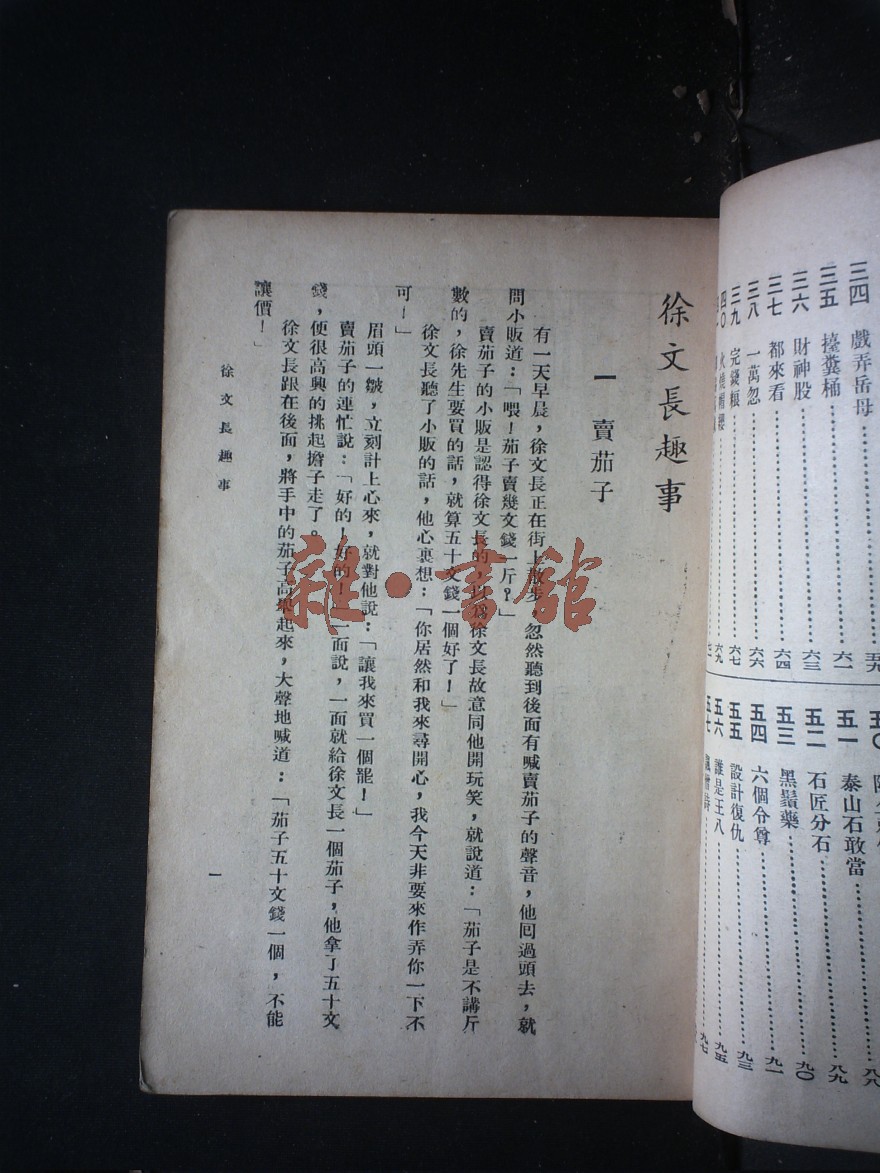 三四 戲弄岳母 五九
三五 擡糞桶 六一
三六 財神股 六三
三七 都來看 六四
三八 一萬忽 六六
三九 完錢糧 六七
四〇 六九
五〇 八八
五一 泰山石敢當 八九
五二 石匠分石 九〇
五三 黑鬚藥 九一
五四 六個令尊 九三
五五 設計復仇 九五
五六 誰是王八 九七
五七
徐文長趣事
一 賣茄子
有一天早晨，徐文長正在街上散步，忽然聽到後面有喊賣茄子的聲音，他回過頭去，就
問小販道：「喂！茄子賣幾文錢一斤？」
賣茄子的小販是認得徐文長的，以爲徐文長故意同他開玩笑，就說道：「茄子是不講斤
數的，徐先生要買的話，就算五十文錢一個好了！」
徐文長聽了小販的話，他心裏想：「你居然和我來尋開心，我今天非要來作弄你一下不
可！」
眉頭一皺，立刻計上心來，就對他說：「讓我來買一個罷！」
賣茄子的連忙說：「好的！好的！」一面說，一面就給徐文長一個茄子，他拿了五十文
錢，便很高興的挑起擔子走了。
徐文長跟在後面，將手中的茄子高舉起來，大聲地喊道：「茄子五十文錢一個，不能
讓價！」
徐文長趣事
一
雜·書館